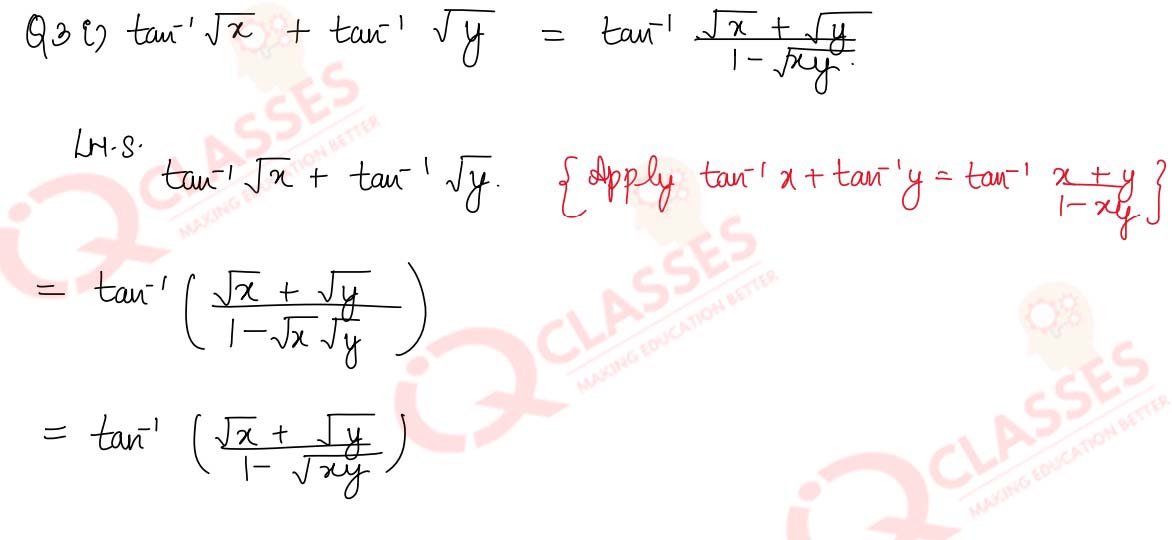 Q3 i) tan⁻¹ √x + tan⁻¹ √y = tan⁻¹ (√x + √y)/(1 - √xy).
L.H.S. tan⁻¹ √x + tan⁻¹ √y. {Apply tan⁻¹ x + tan⁻¹ y = tan⁻¹ (x + y)/(1 - xy)}
= tan⁻¹ ((√x + √y)/(1 - √x √y))
= tan⁻¹ ((√x + √y)/(1 - √xy))
iQ CLASSES
MAKING EDUCATION BETTER
iQ CLASSES
MAKING EDUCATION BETTER
iQ CLASSES
MAKING EDUCATION BETTER